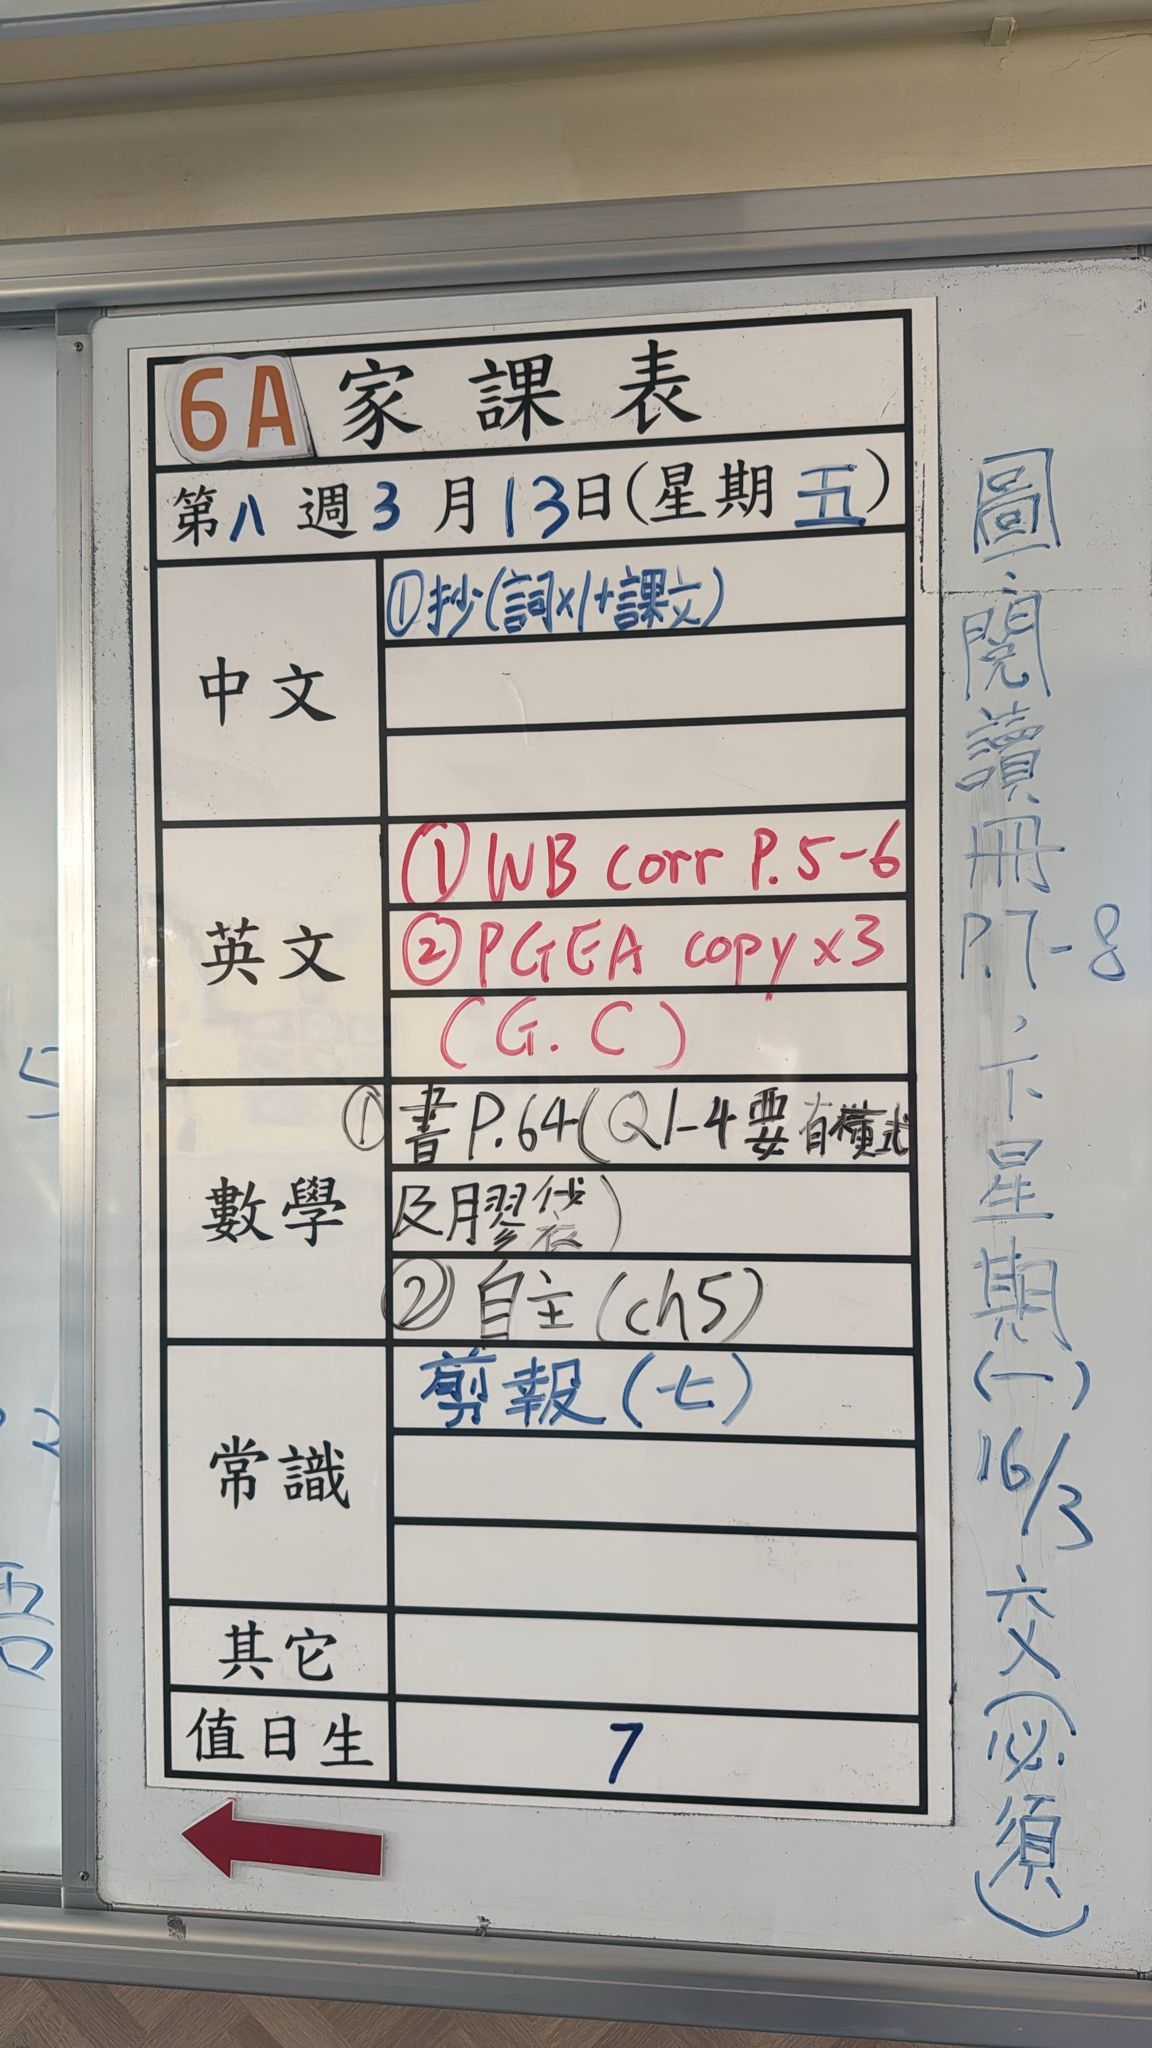 6A 家課表
第八週3月13日(星期五)
中文
①抄(詞x1+課文)
英文
①WB corr P.5-6
②PGEA copy x3
(G.C)
數學
①書P.64(Q1-4要有橫式
及膠袋)
②自主(ch5)
常識
剪報(七)
其它
值日生
7
圖閱讀冊
P.7-8
下星期(一)16/3交(必須)